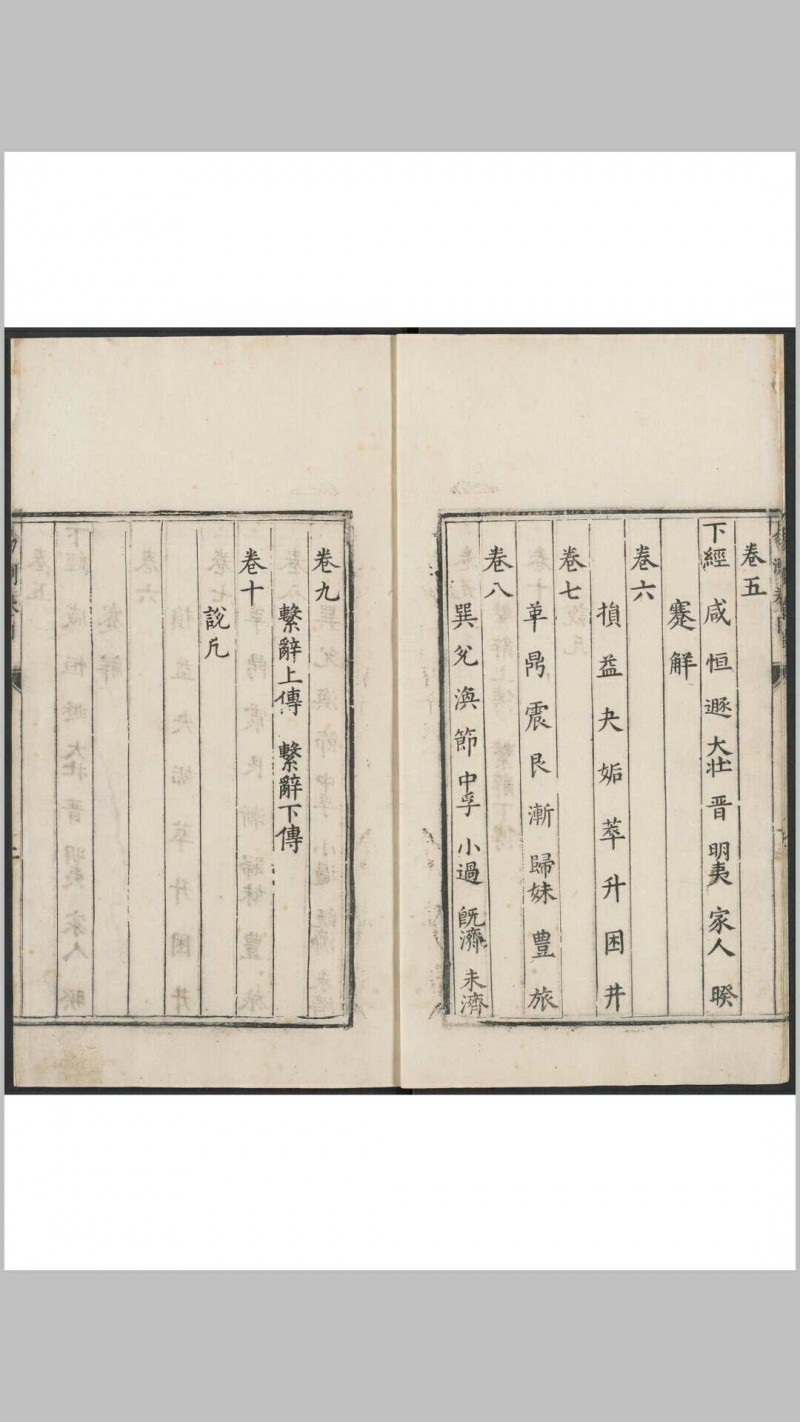 卷五
下經 咸 恒 遯 大壯 晋 明夷 家人 睽
蹇 解
卷六
損 益 夬 姤 萃 升 困 井
卷七
革 鼎 震 艮 漸 歸妹 豊 旅
卷八
巽 兌 渙 節 中孚 小過 既濟 未濟
卷九
繫辭上傳 繫辭下傳
卷十
說凡